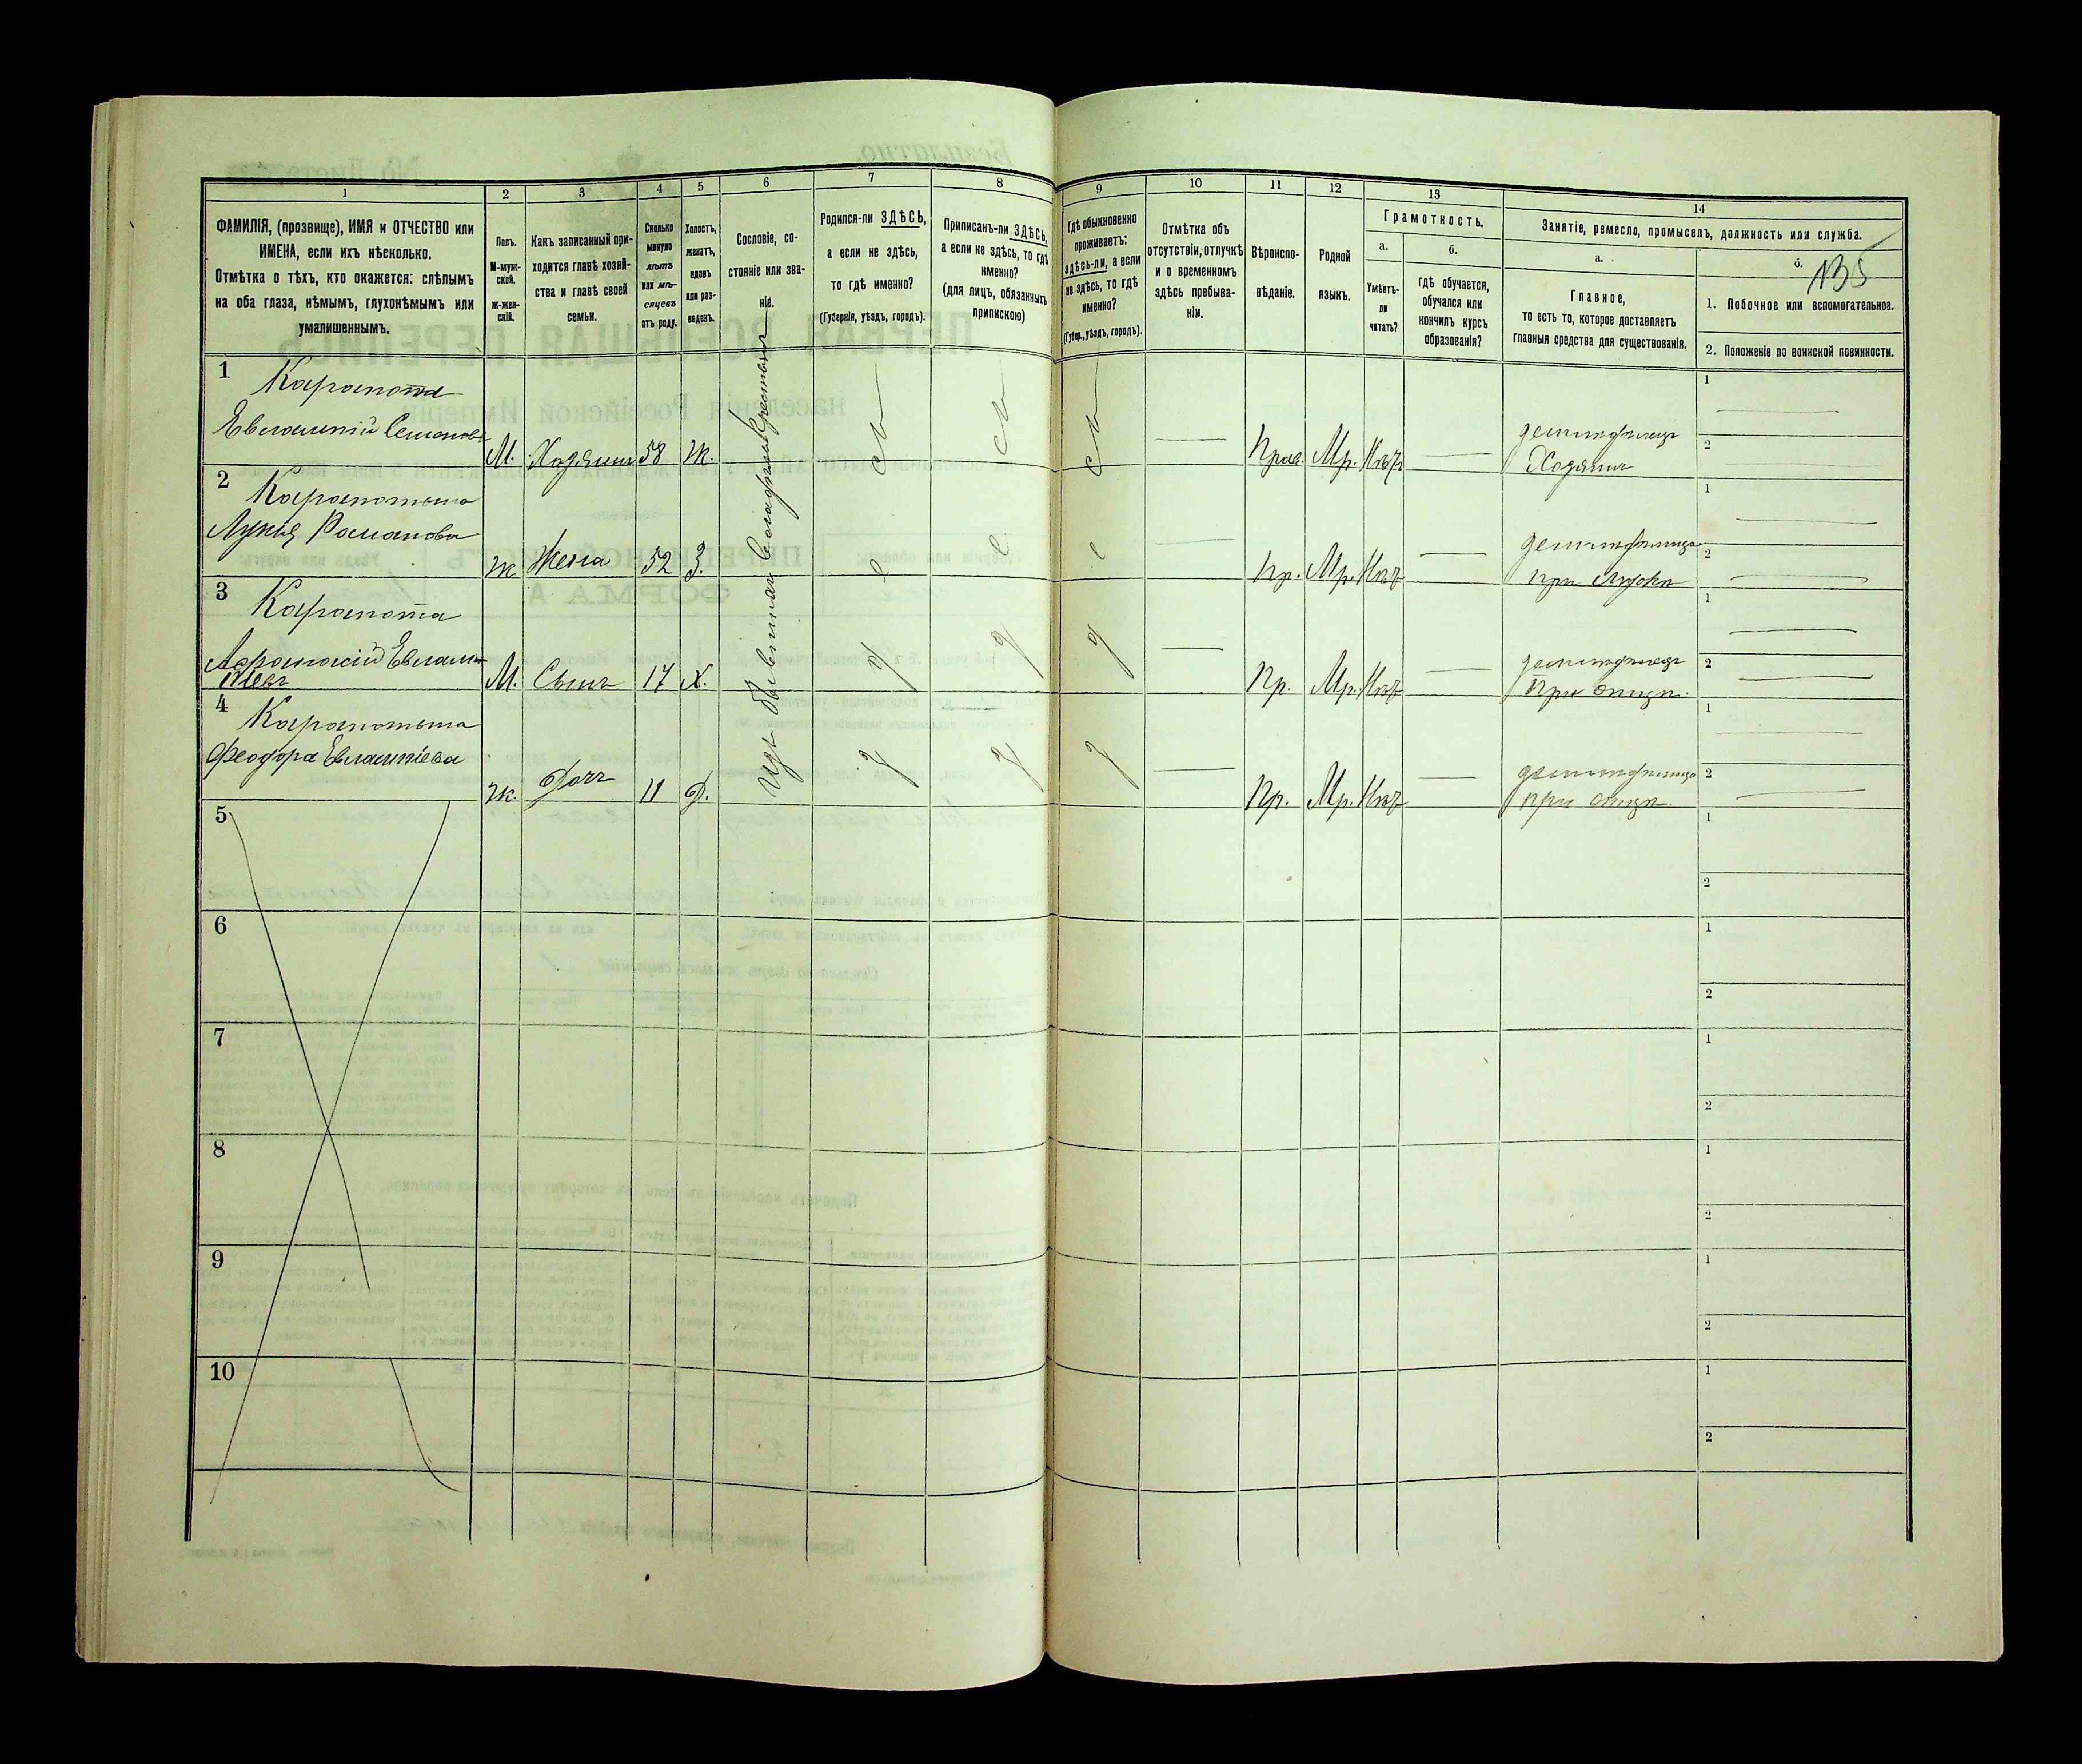 1
2
3
4
5
6
7
8
9
10
11
12
13
14
ФАМИЛІЯ, (прозвище), ИМЯ и ОТЧЕСТВО или
ИМЕНА, если ихъ нѣсколько.
Отмѣтка о тѣхъ, кто окажется: слѣпымъ
на оба глаза, нѣмымъ, глухонѣмымъ или
умалишеннымъ.
Полъ.
М-муж-
ской.
ж-жен-
скій.
Какъ записанный при-
ходится главѣ хозяй-
ства и главѣ своей
семьи.
Сколько
минуло
лѣтъ
или мѣ-
сяцевъ
отъ роду.
Холостъ,
женатъ,
вдовъ
или раз-
веденъ.
Сословіе, со-
стояніе или зва-
ніе.
Родился-ли ЗДѢСЬ,
а если не здѣсь,
то гдѣ именно?
(Губернія, уѣздъ, городъ).
Приписанъ-ли ЗДѢСЬ,
а если не здѣсь, то гдѣ
именно?
(для лицъ, обязанныхъ
припискою)
Гдѣ обыкновенно
проживаетъ:
здѣсь-ли, а если
не здѣсь, то гдѣ
именно?
(Губер., уѣздъ, городъ).
Отмѣтка объ
отсутствіи, отлучкѣ
и о временномъ
здѣсь пребыва-
ніи.
Вѣроиспо-
вѣданіе.
Родной
языкъ.
Грамотность.
а.
Умѣетъ-
ли
читать?
б.
гдѣ обучается,
обучался или
кончилъ курсъ
образованія?
Занятіе, ремесло, промыселъ, должность или служба.
а.
Главное,
то есть то, которое доставляетъ
главныя средства для существованія.
б.
135
1. Побочное или вспомогательное.
2. Положеніе по воинской повинности.
1
Карапота
Евлампій Семеновъ
М. Хозяинъ 58 Ж.
Прав. Мр. Нѣт
Хозяинъ
1
2
2
Карапотина
Лукія Романова
Ж Жена 52 З.
Пр. Мр. Нѣт
при мужѣ
1
2
3
Карапота
Афанасій Евлампіевъ
М. Сынъ 17 Х.
Пр. Мр. Нѣт
При отцѣ
1
2
4
Карапотина
Феодора Евлампіева
Ж. Дочь 11 Д.
Пр. Мр. Нѣт
при отцѣ
1
2
5
1
2
6
1
2
7
1
2
8
1
2
9
1
2
10
1
2